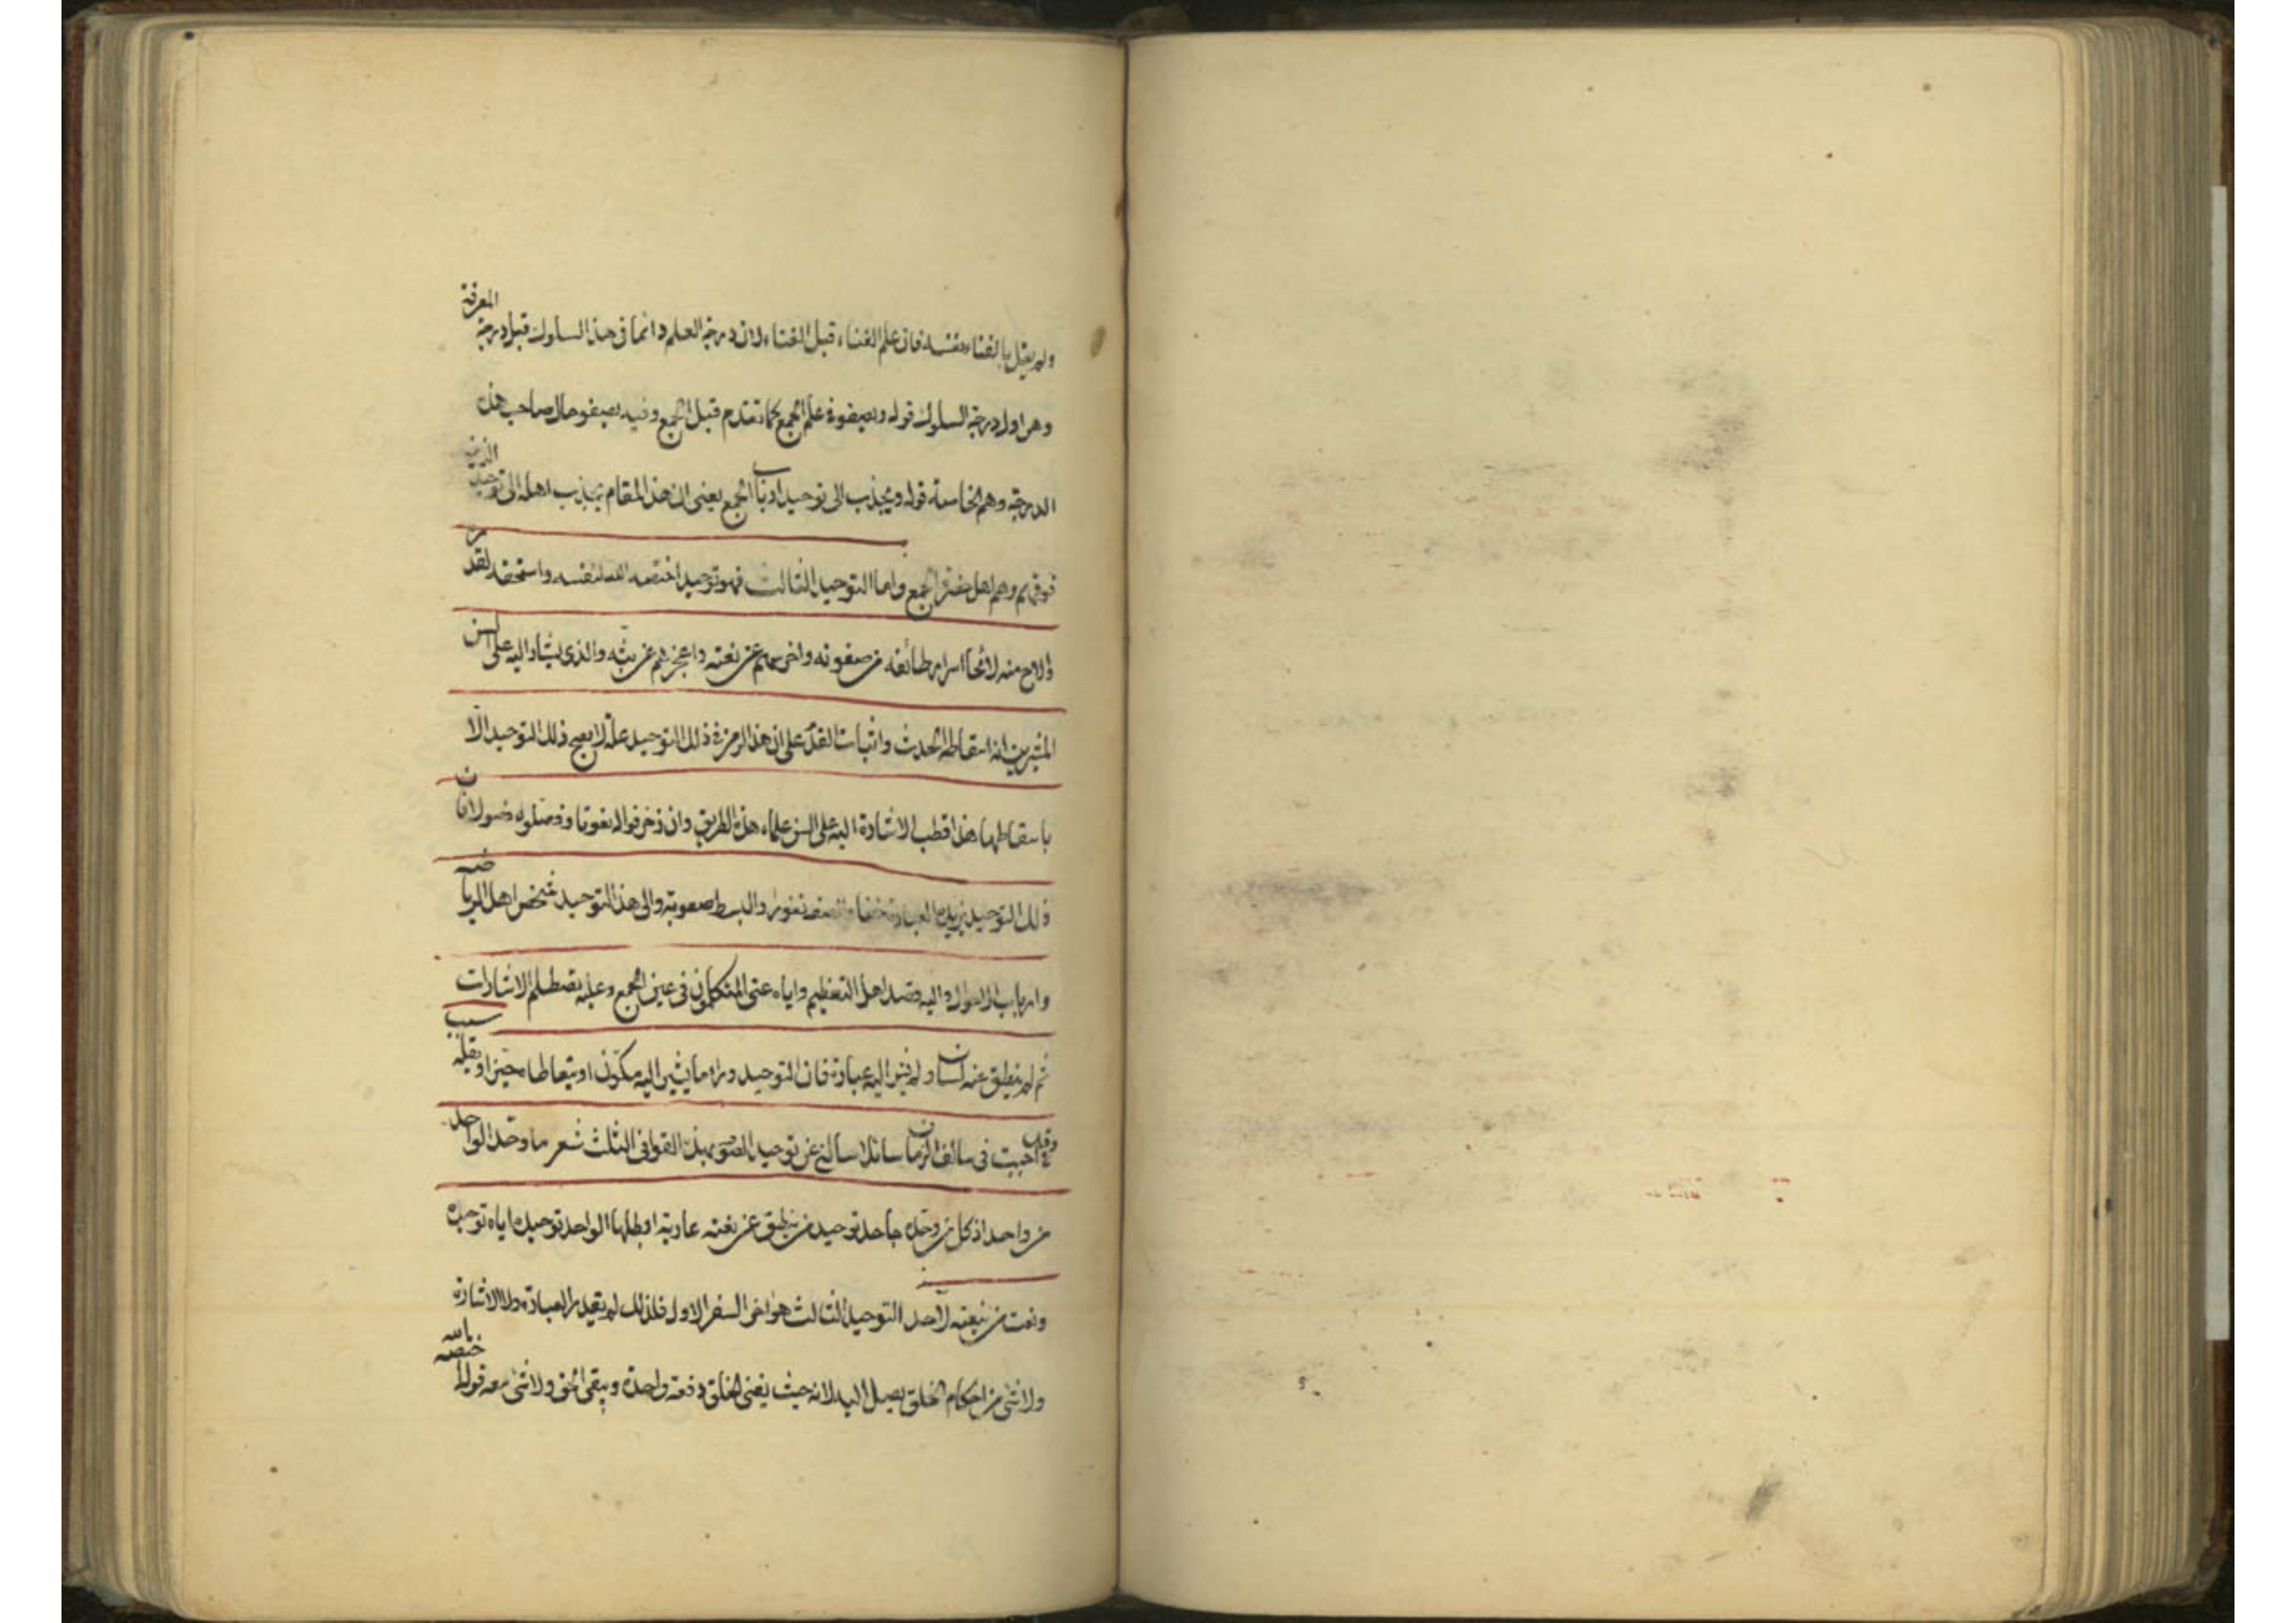 ولم يقل بالفناء نفسه فان علم الفناء قبل الفناء ولان درجة العلم دائما في هذا السلوك قبل درجة المعرفة
وهى اول درجة السلوك قوله وبصفوة علم الجمع كما تقدم قبل الجمع وفيه يصفو حال صاحب هذه
الدرجة وهم الخاصة قوله ويجذب الى توحيد ارباب الجمع يعنى ان هذا المقام يجذب اهله الى توحيد الذين
فوقهم وهم اهل حضرة الجمع واما التوحيد الثالث فهو توحيد اختصه الله لنفسه واستحقه لقدره
والاح منه لائحا اسرار طائفه من صفوته واخرسهم عن نعته واعجزهم عن بثه والذى يشار اليه على السن
المشيرين انه اسقاط الحدث واثبات القدم على ان هذا الرمز فى ذلك التوحيد علة لا يصح ذلك التوحيد الا
باسقاطها هذا قطب الاشارة اليه على السن علماء هذه الطريق وان زخرفوا له نعوتا وفصلوه فصولا فان
ذلك التوحيد يزيده العبارة خفاء والصفة نفورا والبسط صعوبة والى هذا التوحيد شخص اهل الرياضه
وارباب الاحوال واليه قصد اهل التعظيم واياه عنى المتكلمون فى عين الجمع وعليه تصطلم الاشارات
ثم لم ينطق عنه لسان ولم يشر اليه عبارة فان التوحيد وراء ما يشير اليه مكون او يتعاطاه حين او يقله سبب
وقد اجبت فى سالف الزمان سائلا سالنى عن توحيد الصوفية بهذه القوافى الثلث شعر ما وحد الواحد
من واحد اذ كل من وحده جاحد توحيد من ينطق عن نعته عارية ابطلها الواحد توحيده اياه توحيده
ونعت من ينعته لاحد التوحيد الثالث هو اخر السفر الاول فلذلك لم تقيد العبارة ولا الاشارة
ولا شئ من احكام الخلق يصل اليه لانه حيث يفنى الخلق دفعة واحدة ويبقى الحق ولا شئ معه قوله اختصه الله